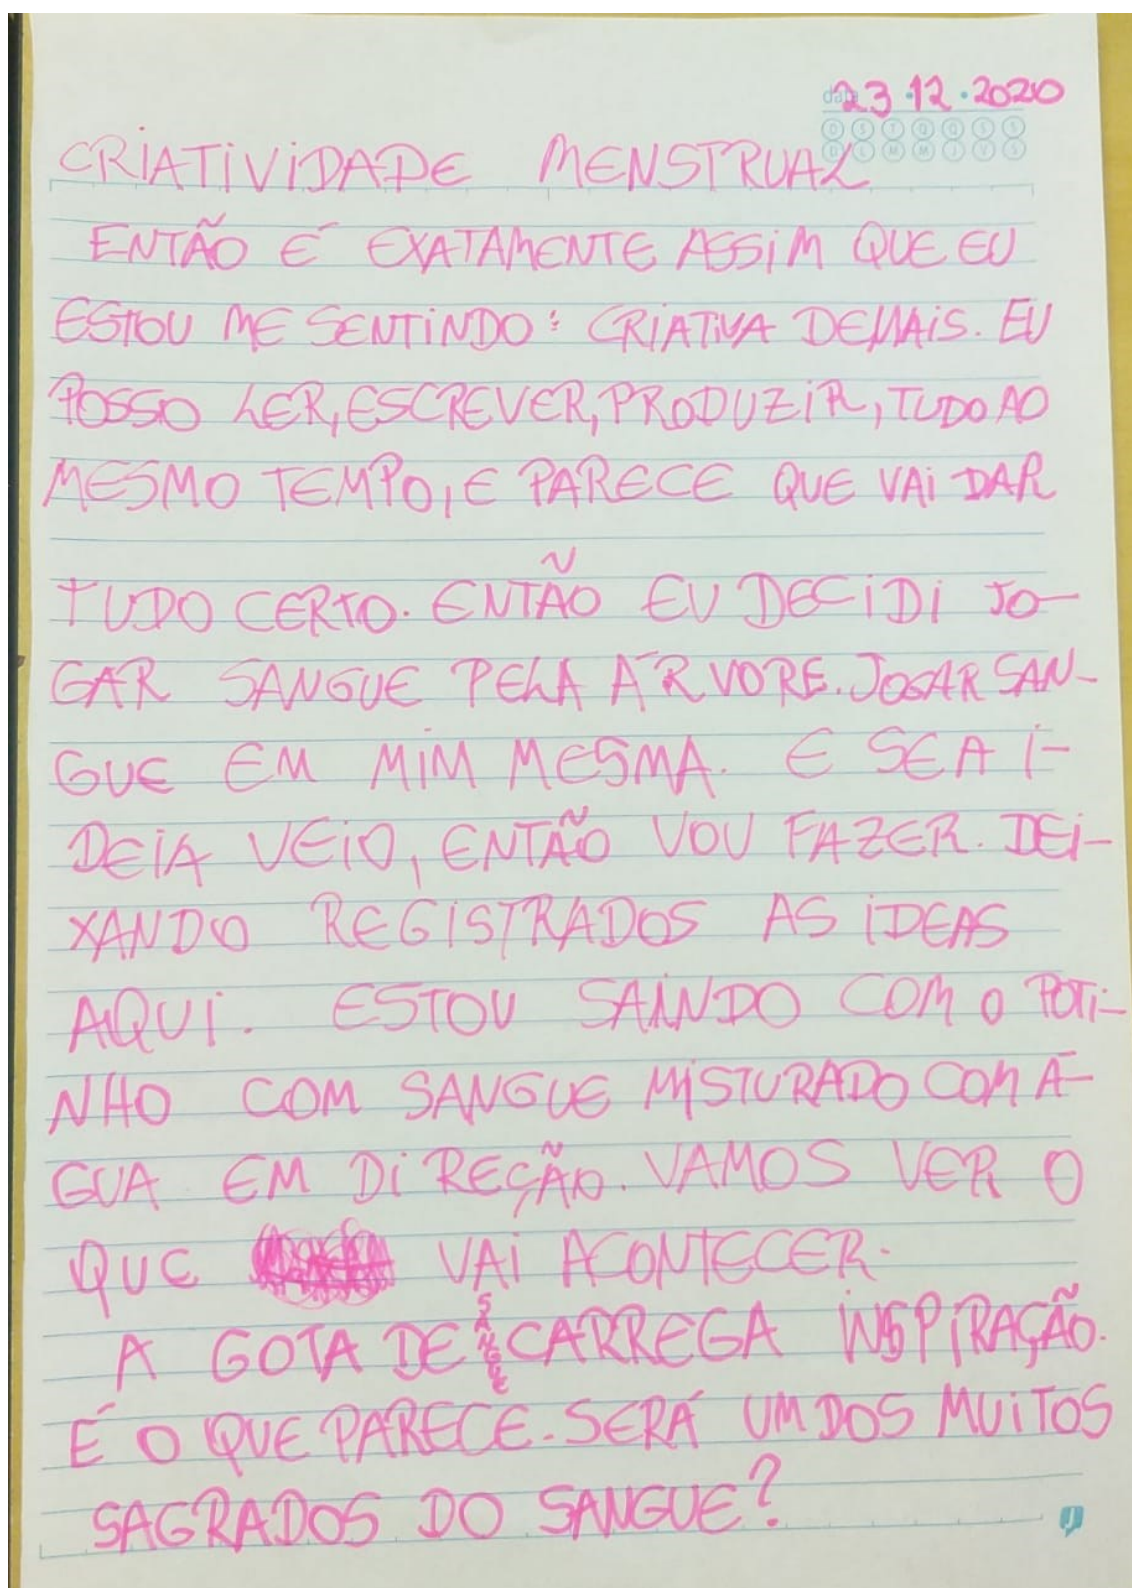 data 23.12.2020
D S T Q Q S S
D L M M J V S
CRIATIVIDADE MENSTRUAL
ENTÃO É EXATAMENTE ASSIM QUE EU
ESTOU ME SENTINDO: CRIATIVA DEMAIS. EU
POSSO LER, ESCREVER, PRODUZIR, TUDO AO
MESMO TEMPO, E PARECE QUE VAI DAR
TUDO CERTO. ENTÃO EU DECIDI JO-
GAR SANGUE PELA ÁRVORE. JOGAR SAN-
GUE EM MIM MESMA. E SE A I-
DEIA VEIO, ENTÃO VOU FAZER. DEI-
XANDO REGISTRADOS AS IDEAS
AQUI. ESTOU SAINDO COM O POTI-
NHO COM SANGUE MISTURADO COM Á-
GUA EM DIREÇÃO. VAMOS VER O
QUE VAI ACONTECER.
A GOTA DE SANGUE CARREGA INSPIRAÇÃO.
É O QUE PARECE. SERÁ UM DOS MUITOS
SAGRADOS DO SANGUE?